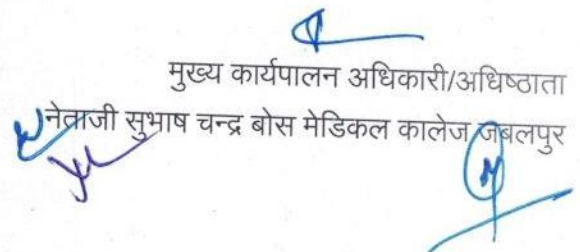 मुख्य कार्यपालन अधिकारी/अधिष्ठाता
नेताजी सुभाष चन्द्र बोस मेडिकल कालेज जबलपुर